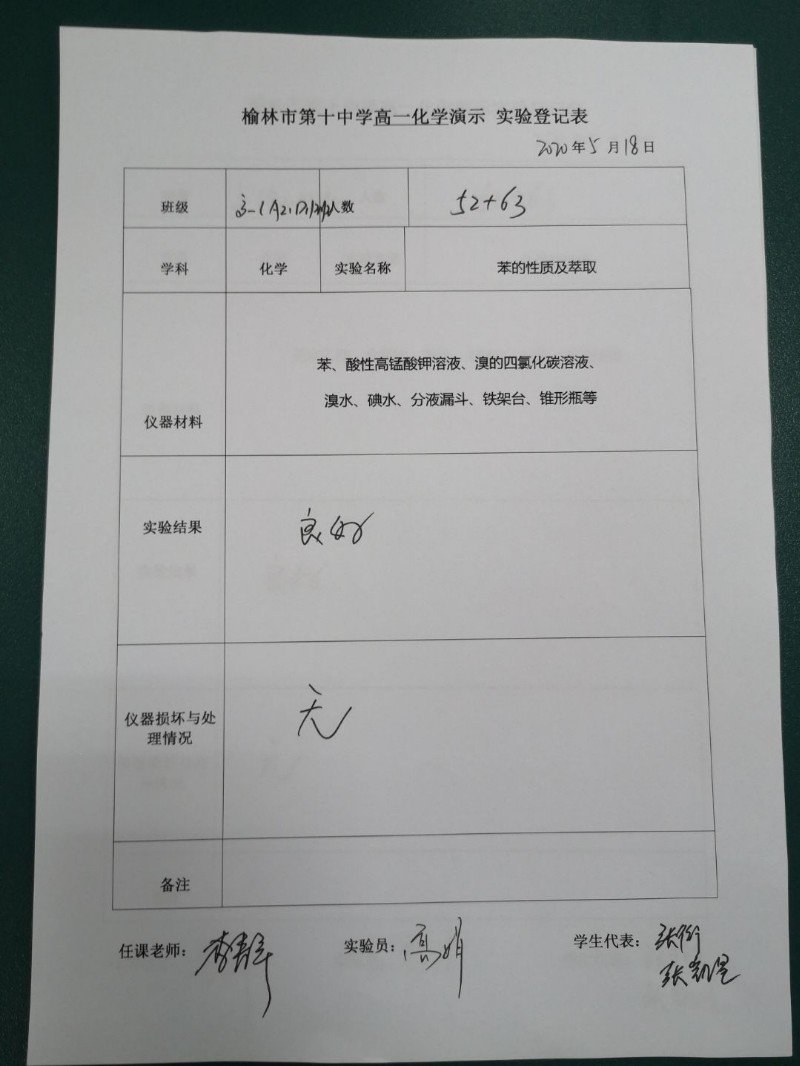 榆林市第十中学高一化学演示 实验登记表
2020年5月18日
班级 高一(A2,D1) 人数 52+63
学科 化学 实验名称 苯的性质及萃取
苯、酸性高锰酸钾溶液、溴的四氯化碳溶液、
仪器材料 溴水、碘水、分液漏斗、铁架台、锥形瓶等
实验结果 良好
仪器损坏与处
理情况 无
备注
任课老师: 实验员: 高娟 学生代表: 张衡